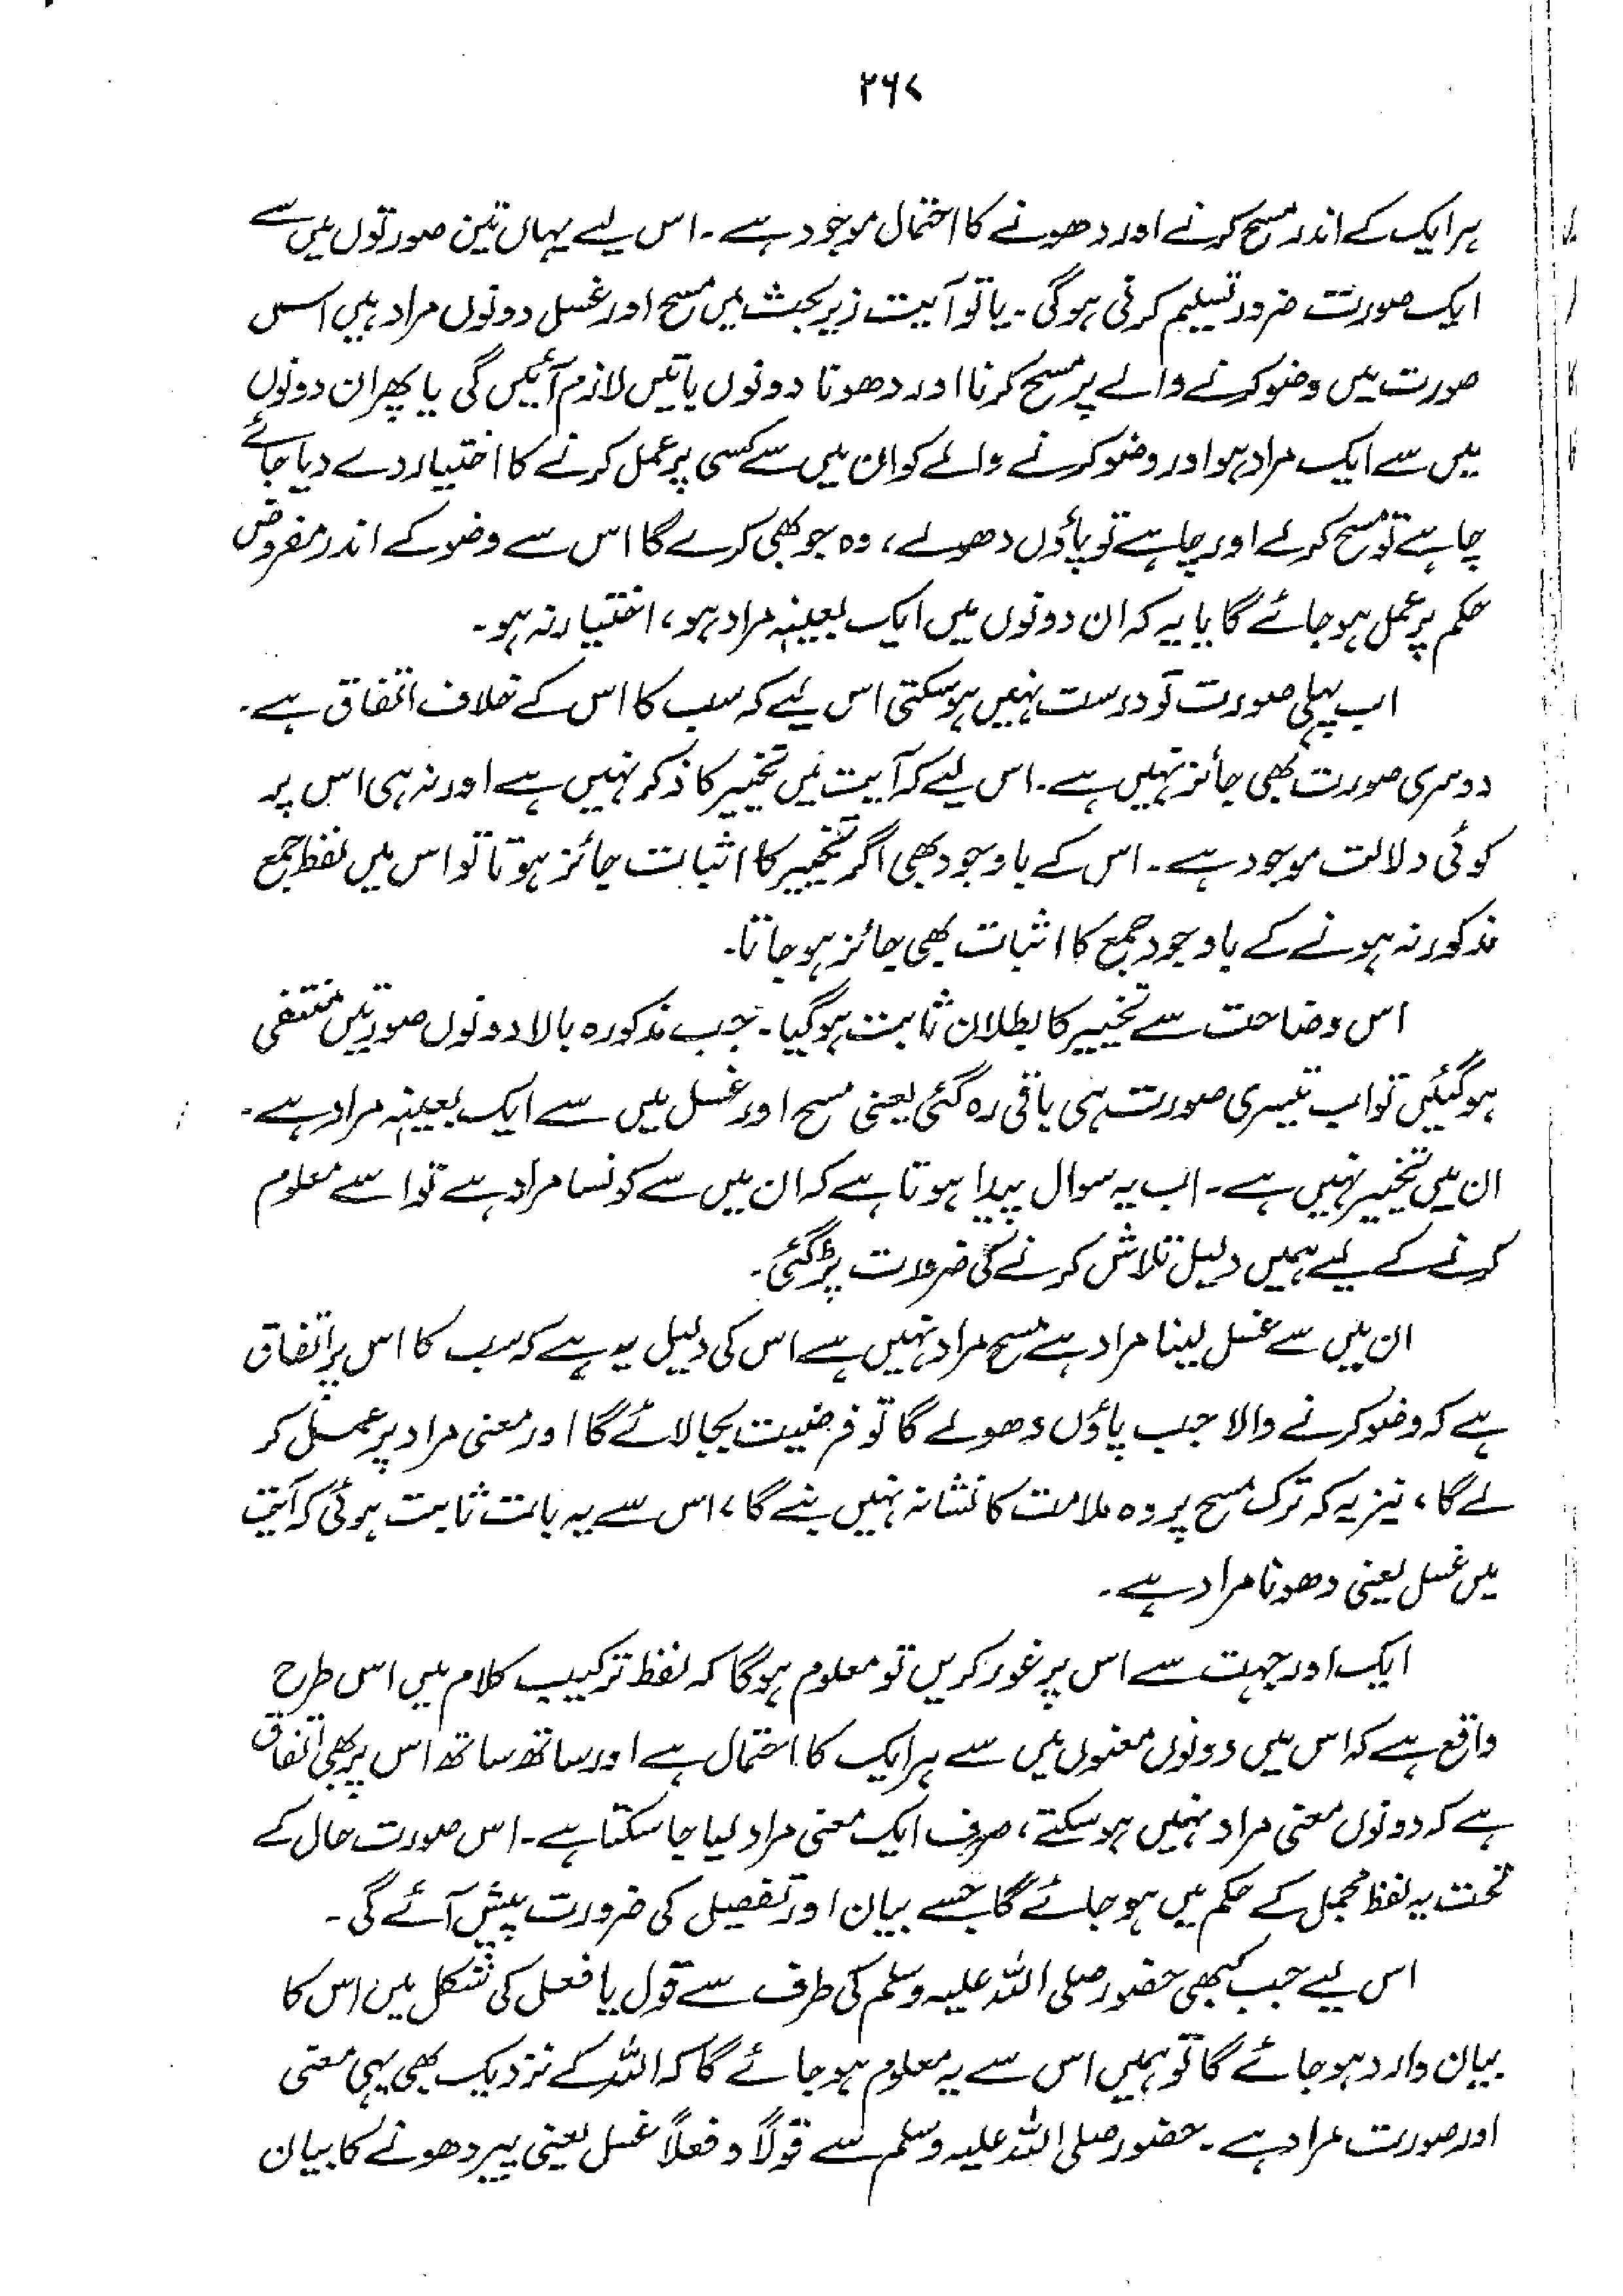 ۲۶۷
ہر ایک کے اندر مسح کرنے اور دھونے کا احتمال موجود ہے۔ اس لیے یہاں تین صورتوں میں سے
ایک صورت ضرور تسلیم کرنی ہوگی۔ یا تو آیت زیر بحث میں مسح اور غسل دونوں مراد ہیں اس
صورت میں وضو کرنے والے پر مسح کرنا اور دھونا دونوں باتیں لازم آئیں گی یا پھر ان دونوں
میں سے ایک مراد ہو اور وضو کرنے والے کو ان میں سے کسی پر عمل کرنے کا اختیار دے دیا جائے
چاہے تو مسح کرلے اور چاہے تو پاؤں دھولے، وہ جو بھی کرے گا اس سے وضو کے اندر مفروض
حکم پر عمل ہو جائے گا یا یہ کہ ان دونوں میں ایک بعینہٖ مراد ہو، اختیار نہ ہو۔
اب پہلی صورت تو درست نہیں ہوسکتی اس لیے کہ سب کا اس کے خلاف اتفاق ہے۔
دوسری صورت بھی جائز نہیں ہے۔ اس لیے کہ آیت میں تخییر کا ذکر نہیں ہے اور نہ ہی اس پر
کوئی دلالت موجود ہے۔ اس کے باوجود بھی اگر تخییر کا اثبات جائز ہوتا تو اس میں لفظ جمع
مذکور نہ ہونے کے باوجود جمع کا اثبات بھی جائز ہوجاتا۔
اس وضاحت سے تخییر کا بطلان ثابت ہوگیا۔ جب مذکورہ بالا دونوں صورتیں منتفی
ہوگئیں تو اب تیسری صورت ہی باقی رہ گئی یعنی مسح اور غسل میں سے ایک بعینہٖ مراد ہے۔
ان میں تخییر نہیں ہے۔ اب یہ سوال پیدا ہوتا ہے کہ ان میں سے کونسا مراد ہے تو اسے معلوم
کرنے کے لیے ہمیں دلیل تلاش کرنے کی ضرورت پڑگئی۔
ان میں سے غسل لینا مراد ہے مسح مراد نہیں ہے اس کی دلیل یہ ہے کہ سب کا اس پر اتفاق
ہے کہ وضو کرنے والا جب پاؤں دھولے گا تو فرضیت بجا لائے گا اور معنی مراد پر عمل کر
لے گا، نیز یہ کہ ترک مسح پر وہ ملامت کا نشانہ نہیں بنے گا، اس سے یہ بات ثابت ہوئی کہ آیت
میں غسل یعنی دھونا مراد ہے۔
ایک اور جہت سے اس پر غور کریں تو معلوم ہوگا کہ لفظ ترکیب کلام میں اس طرح
واقع ہے کہ اس میں دونوں معنوں میں سے ہر ایک کا احتمال ہے اور ساتھ ساتھ اس پر بھی اتفاق
ہے کہ دونوں معنی مراد نہیں ہوسکتے، صرف ایک معنی مراد لیا جاسکتا ہے۔ اس صورت حال کے
تحت یہ لفظ مجمل کے حکم میں ہوجائے گا جسے بیان اور تفصیل کی ضرورت پیش آئے گی۔
اس لیے جب کبھی حضور صلی اللہ علیہ وسلم کی طرف سے قول یا فعل کی شکل میں اس کا
بیان وارد ہوجائے گا تو ہمیں اس سے یہ معلوم ہوجائے گا کہ اللہ کے نزدیک بھی یہی معنی
اور صورت مراد ہے۔ حضور صلی اللہ علیہ وسلم سے قولاً و فعلاً غسل یعنی پیر دھونے کا بیان